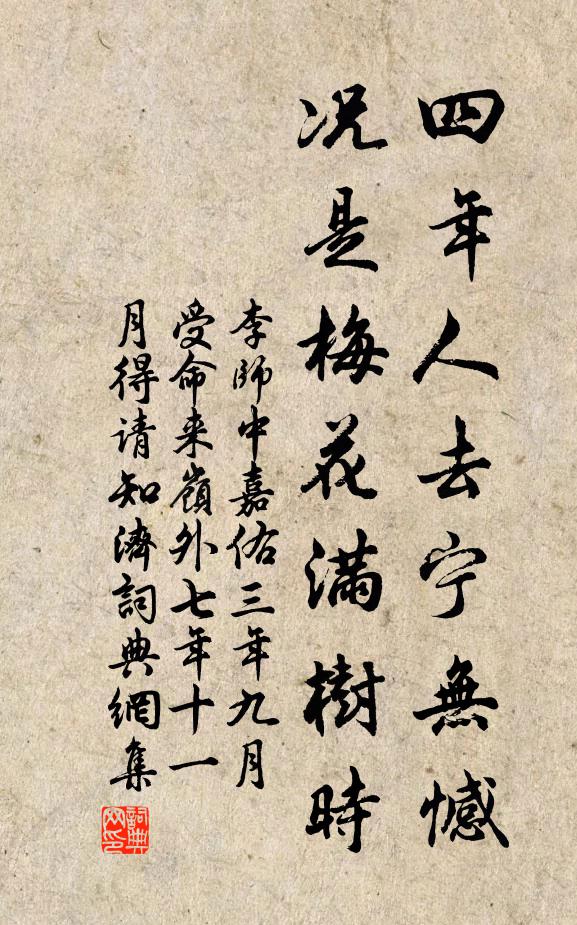 四年人去宁無憾
况是梅花滿樹時
李師中嘉佑三年九月
受命来嶺外七年十一
月得请知濟詞典網集
詞典
网印